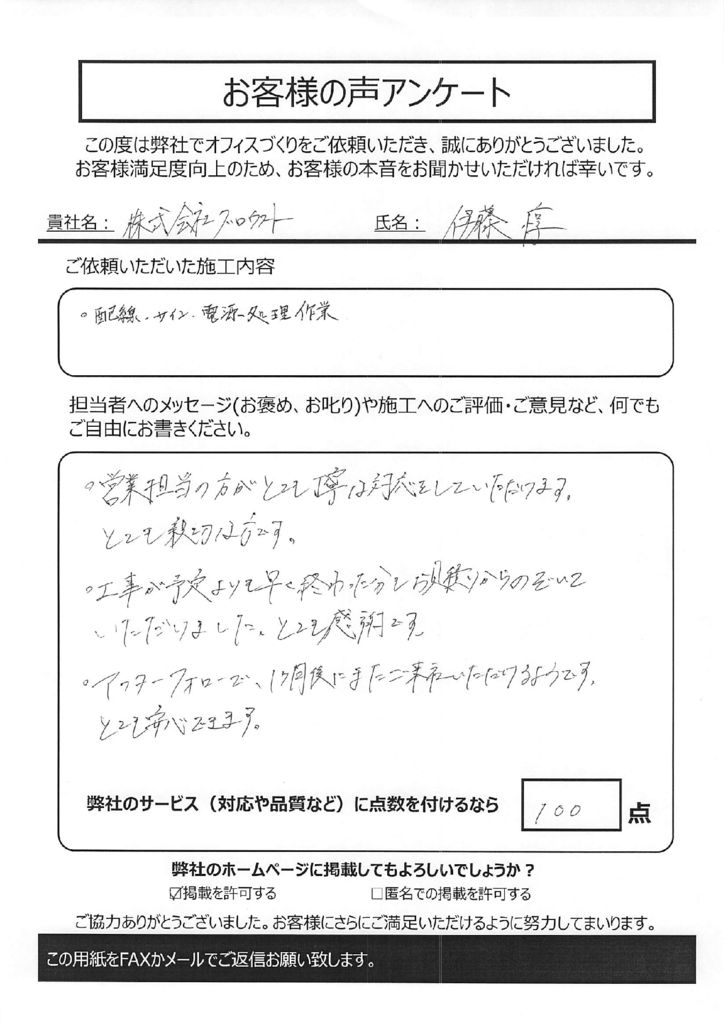 お客様の声アンケート
この度は弊社でオフィスづくりをご依頼いただき、誠にありがとうございました。
お客様満足度向上のため、お客様の本音をお聞かせいただければ幸いです。
貴社名： 株式会社グロウスト 氏名： 伊藤 淳
ご依頼いただいた施工内容
。配線・サイン・電源処理作業
担当者へのメッセージ(お褒め、お叱り)や施工へのご評価・ご意見など、何でも
ご自由にお書きください。
。営業担当の方がとても丁寧な対応をしていただけます。
とても親切な方です。
。工事が予定よりも早く終わった分もお見積りからのぞいて
いただいました。とても感謝です
。アフターフォローで、1ヶ月後にまたご来社いただけるようです。
とても安心できます。
弊社のサービス（対応や品質など）に点数を付けるなら 100 点
弊社のホームページに掲載してもよろしいでしょうか？
☑掲載を許可する □匿名での掲載を許可する
ご協力ありがとうございました。お客様にさらにご満足いただけるように努力してまいります。
この用紙をFAXかメールでご返信お願い致します。